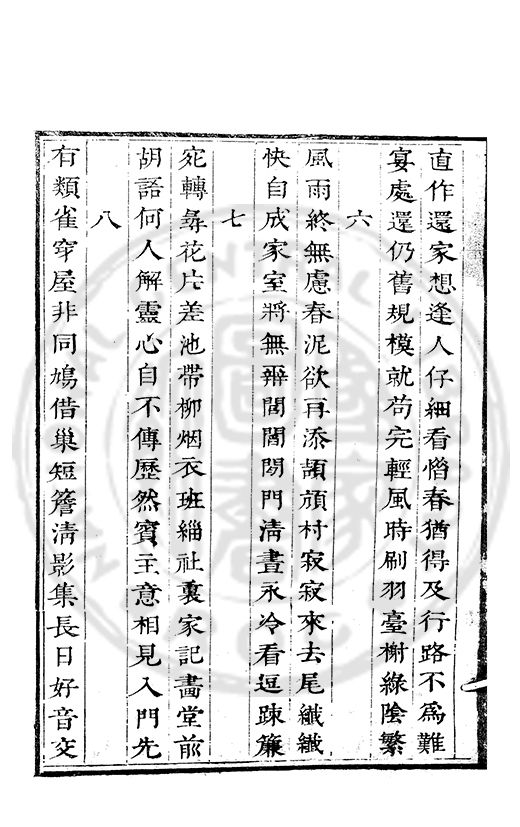 直作還家想逢人仔細看惜春猶得及行路不為難
宴處還仍舊規模就苟完輕風時刷羽臺榭綠陰繁
六
風雨終無慮春泥欲再添頡頏村寂寂來去尾纖纖
快自成家室將無舜閭閻閉門清晝永冷看逗疎簾
七
宛轉尋花片差池帶柳烟衣班緇社裏家記畵堂前
胡語何人解靈心自不傳歷然賓主意相見入門先
八
有類雀穿屋非同鳩借巢短簷清影集長日好音交